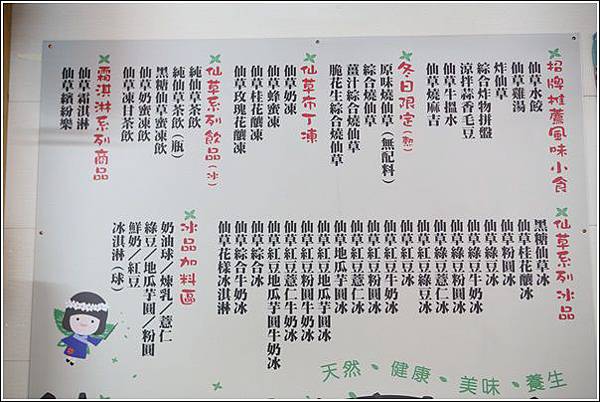 招牌推薦風味小食
仙草水餃
仙草雞湯
炸仙草
綜合炸物拼盤
涼拌蒜香毛豆
仙草牛搵水
仙草燒麻吉
冬日限定(熱)
原味燒仙草(無配料)
綜合燒仙草
薑汁綜合燒仙草
脆花生綜合燒仙草
仙草布丁凍
仙草奶凍
仙草蜂蜜凍
仙草桂花釀凍
仙草玫瑰花釀凍
仙草系列飲品(冰)
純仙草茶飲
純仙草茶飲(瓶)
黑糖仙草蜜凍飲
仙草奶蜜凍飲
仙草凍甘茶飲
霜淇淋系列商品
仙草霜淇淋
仙草繽紛樂
仙草系列冰品
黑糖仙草冰
仙草桂花釀冰
仙草粉圓冰
仙草牛奶冰
仙草綠豆冰
仙草綠豆牛奶冰
仙草綠豆粉圓冰
仙草綠豆薏仁冰
仙草紅豆冰
仙草紅豆綠豆冰
仙草紅豆牛奶冰
仙草紅豆粉圓冰
仙草紅豆薏仁冰
仙草地瓜芋圓冰
仙草紅豆地瓜芋圓冰
仙草紅豆粉圓牛奶冰
仙草紅豆薏仁牛奶冰
仙草紅豆地瓜芋圓牛奶冰
仙草綜合冰
仙草綜合牛奶冰
仙草花樣冰淇淋
冰品加料區
奶油球/煉乳/薏仁
綠豆/地瓜芋圓/粉圓
鮮奶/紅豆
冰淇淋(球)
天然・健康・美味・養生